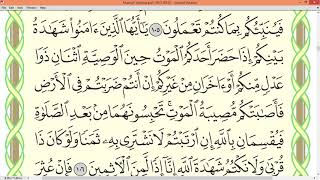 فَيُنَبِّئُكُم بِمَا كُنتُمْ تَعْمَلُونَ ١٠٥ يَـٰٓأَيُّهَا ٱلَّذِينَ ءَامَنُوا۟ شَهَـٰدَةُ
بَيْنِكُمْ إِذَا حَضَرَ أَحَدَكُمُ ٱلْمَوْتُ حِينَ ٱلْوَصِيَّةِ ٱثْنَانِ ذَوَا
عَدْلٍ مِّنكُمْ أَوْ ءَاخَرَانِ مِنْ غَيْرِكُمْ إِنْ أَنتُمْ ضَرَبْتُمْ فِى ٱلْأَرْضِ
فَأَصَـٰبَتْكُم مُّصِيبَةُ ٱلْمَوْتِ تَحْبِسُونَهُمَا مِنۢ بَعْدِ ٱلصَّلَوٰةِ
فَيُقْسِمَانِ بِٱللَّهِ إِنِ ٱرْتَبْتُمْ لَا نَشْتَرِى بِهِۦ ثَمَنًا وَلَوْ كَانَ ذَا
قُرْبَىٰ وَلَا نَكْتُمُ شَهَـٰدَةَ ٱللَّهِ إِنَّآ إِذًا لَّمِنَ ٱلْـَٔاثِمِينَ ١٠٦ فَإِنْ عُثِرَ